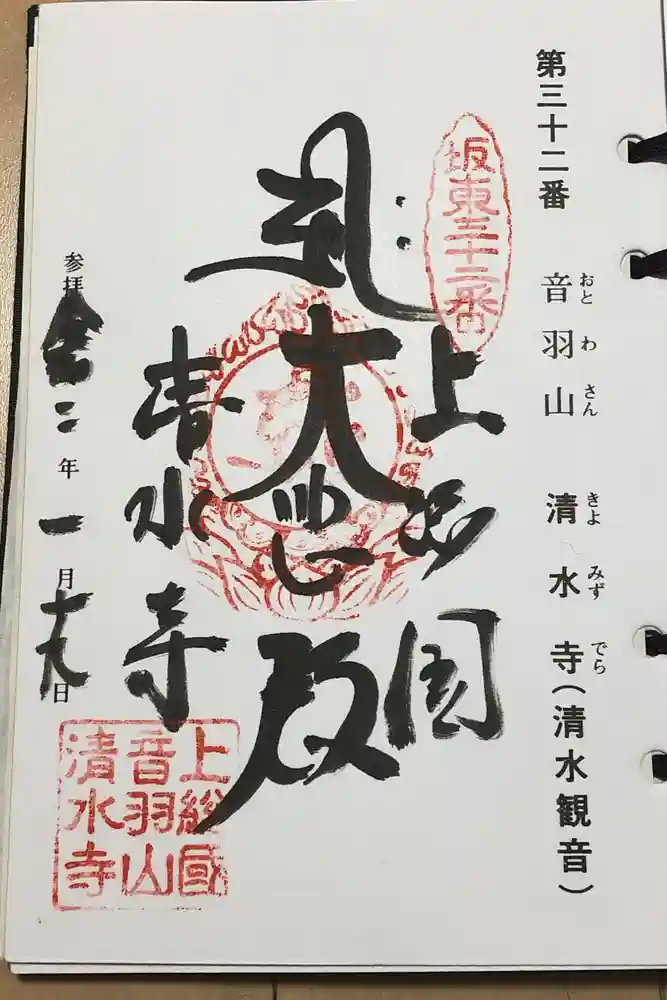 第三十二番 音羽山 清水寺(清水観音)
おとわさん きよみずでら
坂東三十二番
上総国
大悲殿
清水寺
参拝 令二年一月十九日
上総國
音羽山
清水寺